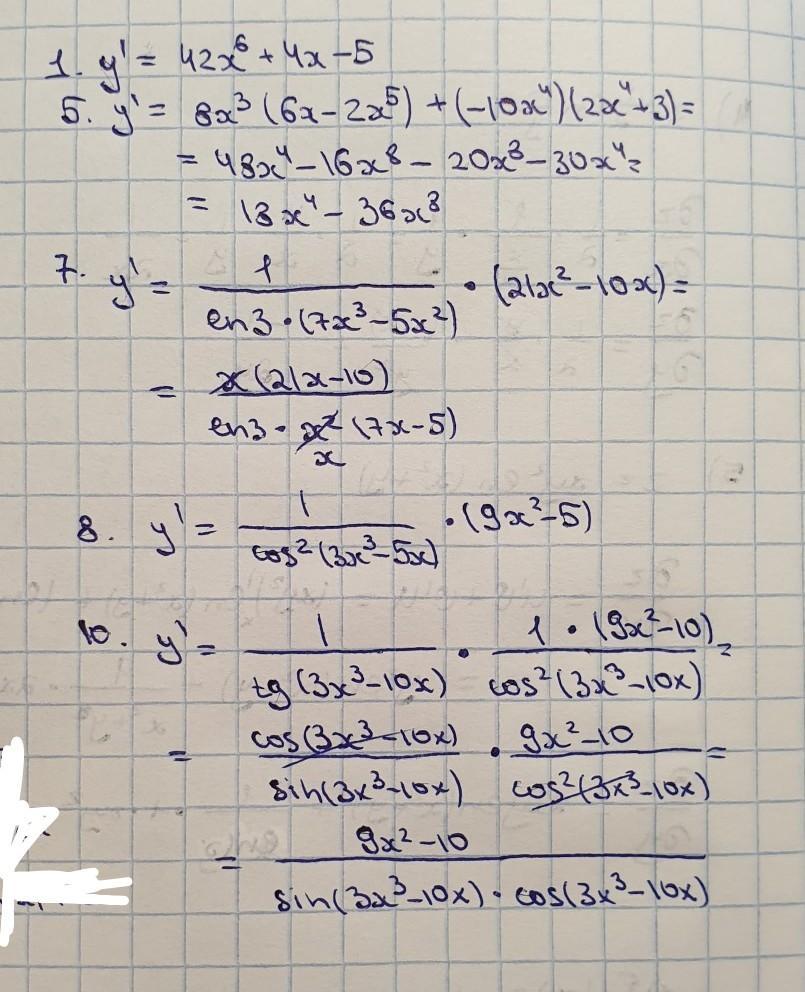 1. y' = 42x⁶ + 4x - 5
5. y' = 8x³ (6x - 2x⁵) + (-10x⁴)(2x⁴ + 3) =
= 48x⁴ - 16x⁸ - 20x⁸ - 30x⁴ =
= 18x⁴ - 36x⁸
7. y' = 1 / (ln3 · (7x³ - 5x²)) · (21x² - 10x) =
= x(21x - 10) / (ln3 · x² (7x - 5))
x
8. y' = 1 / cos²(3x³ - 5x) · (9x² - 5)
10. y' = 1 / tg(3x³ - 10x) · 1 · (9x² - 10) / cos²(3x³ - 10x) =
= cos(3x³ - 10x) / sin(3x³ - 10x) · 9x² - 10 / cos²(3x³ - 10x) =
= 9x² - 10 / sin(3x³ - 10x) · cos(3x³ - 10x)